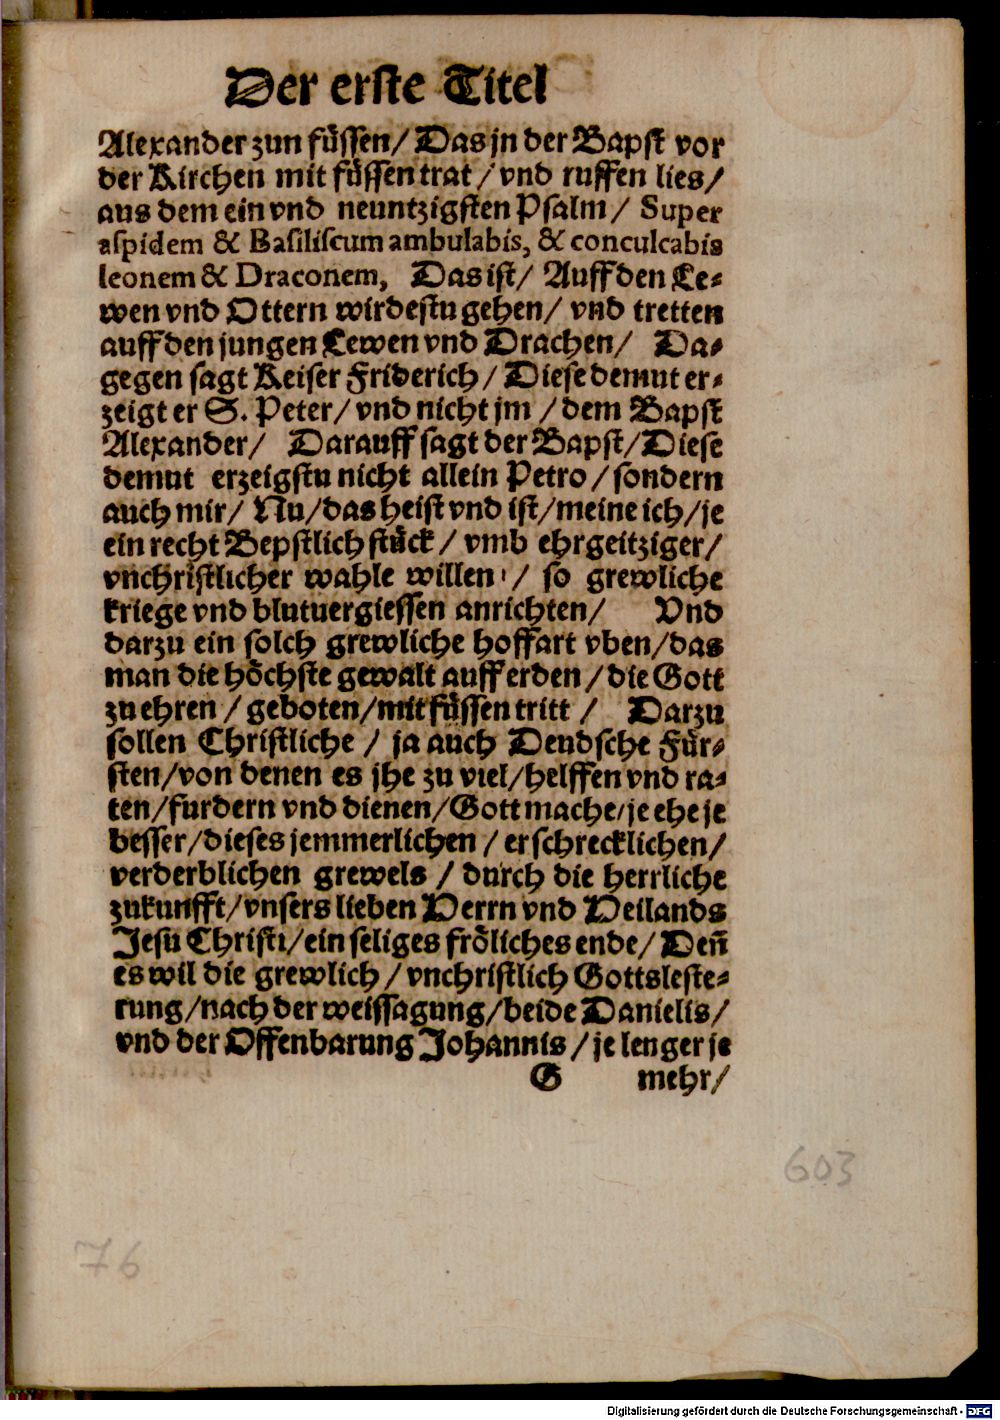 Der erste Titel
Alexander zun füssen/ Das jn der Bapst vor
der Kirchen mit füssen trat/ vnd ruffen lies/
aus dem ein vnd neuntzigsten Psalm/ Super
aspidem & Basiliscum ambulabis, & conculcabis
leonem & Draconem, Das ist/ Auff den Le-
wen vnd Ottern wirdestu gehen/ vnd tretten
auff den jungen Lewen vnd Drachen/ Da-
gegen sagt Keiser Friderich/ Diese demut er-
zeigt er S. Peter/ vnd nicht jm/ dem Bapst
Alexander/ Darauff sagt der Bapst/ Diese
demut erzeigstu nicht allein Petro/ sondern
auch mir/ Nu/ das heist vnd ist/ meine ich/ je
ein recht Bepstlich stück/ vmb ehrgeitziger/
vnchristlicher wahle willen/ so grewliche
kriege vnd blutuergiessen anrichten/ Vnd
darzu ein solch grewliche hoffart vben/ das
man die höchste gewalt auff erden/ die Gott
zu ehren/ geboten/ mit füssen tritt/ Darzu
sollen Christliche/ ja auch Deudsche Für-
sten/ von denen es jhe zu viel/ helffen vnd ra-
ten/ furdern vnd dienen/ Gott mache/ je ehe je
besser/ dieses jemmerlichen/ erschrecklichen/
verderblichen grewels/ durch die herrliche
zukunfft/ vnsers lieben Herrn vnd Heilands
Jesu Christi/ ein seliges fröliches ende/ Deñ
es wil die grewlich/ vnchristlich Gottsleste-
rung/ nach der weissagung/ beide Danielis/
vnd der Offenbarung Johannis/ je lenger je
G mehr/
603
76
Digitalisierung gefördert durch die Deutsche Forschungsgemeinschaft - DFG